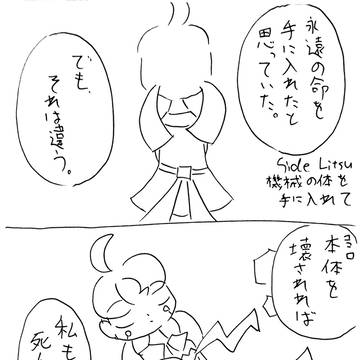 永遠の命を
手に入れたと
思っていた。
Side Litsu
機械の体を
手に入れて
でも、
それは違う。
本体を
壊されれば
私も
死ん